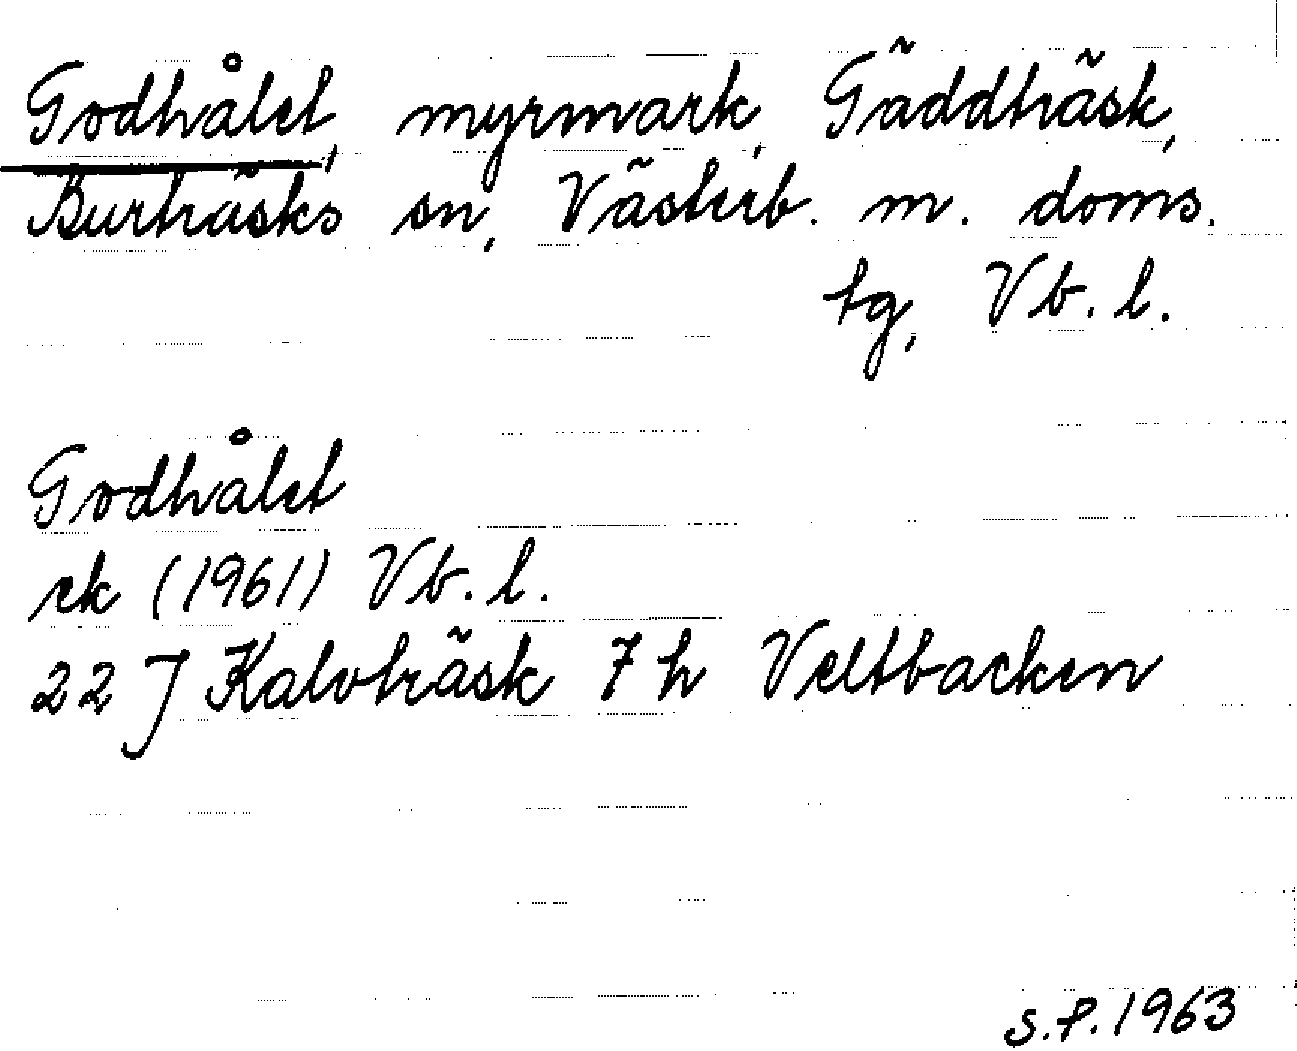 Godhålet, myrmark, Gäddträsk,
Burträsks sn, Västerb. m. doms.
tg, Vb. l.
Godhålet
ek (1961) Vb. l.
22 J Kalvträsk 7 h Veltbacken
S.P. 1963